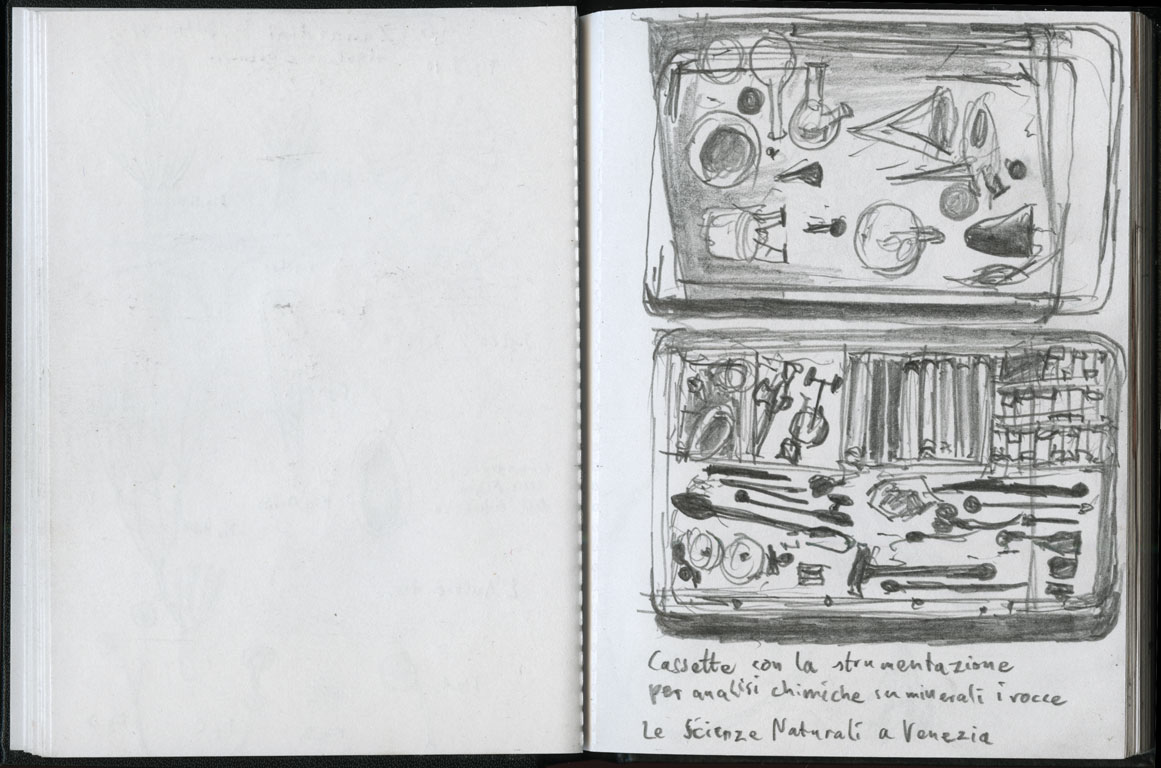 Cassette con la strumentazione
per analisi chimiche su minerali i rocce
Le Scienze Naturali a Venezia